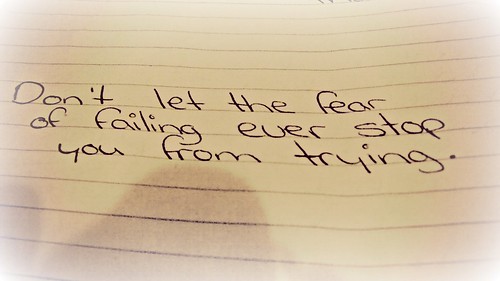 Don't let the fear
of failing ever stop
you from trying.